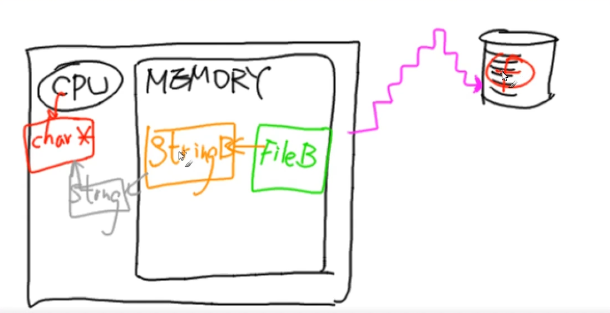 CPU
MEMORY
char *
StringB
FileB
String
f